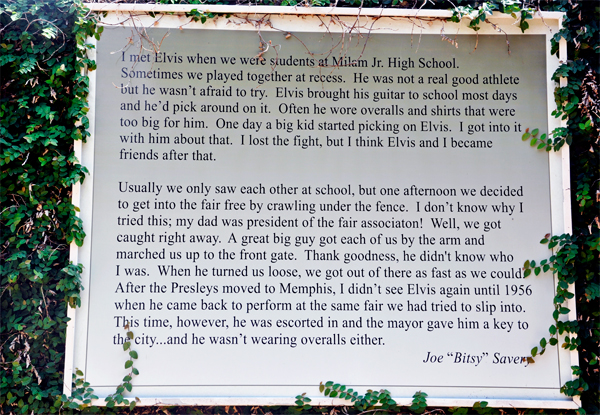 I met Elvis when we were students at Milam Jr. High School.
Sometimes we played together at recess. He was not a real good athlete
but he wasn't afraid to try. Elvis brought his guitar to school most days
and he'd pick around on it. Often he wore overalls and shirts that were
too big for him. One day a big kid started picking on Elvis. I got into it
with him about that. I lost the fight, but I think Elvis and I became
friends after that.
Usually we only saw each other at school, but one afternoon we decided
to get into the fair free by crawling under the fence. I don't know why I
tried this; my dad was president of the fair associaton! Well, we got
caught right away. A great big guy got each of us by the arm and
marched us up to the front gate. Thank goodness, he didn't know who
I was. When he turned us loose, we got out of there as fast as we could.
After the Presleys moved to Memphis, I didn't see Elvis again until 1956
when he came back to perform at the same fair we had tried to slip into.
This time, however, he was escorted in and the mayor gave him a key to
the city...and he wasn't wearing overalls either.
Joe "Bitsy" Savery